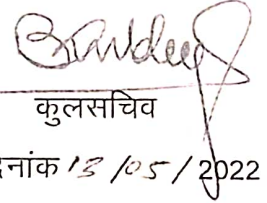 कुलसचिव
दिनांक 13/05/2022